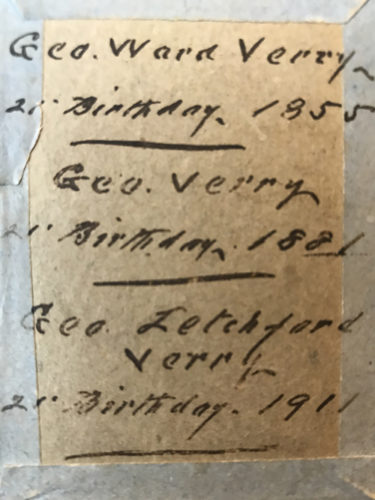 Geo. Ward Verry
21st Birthday. 1855
Geo. Verry
21st Birthday. 1881
Geo. Letchford
Verry
21st Birthday. 1911